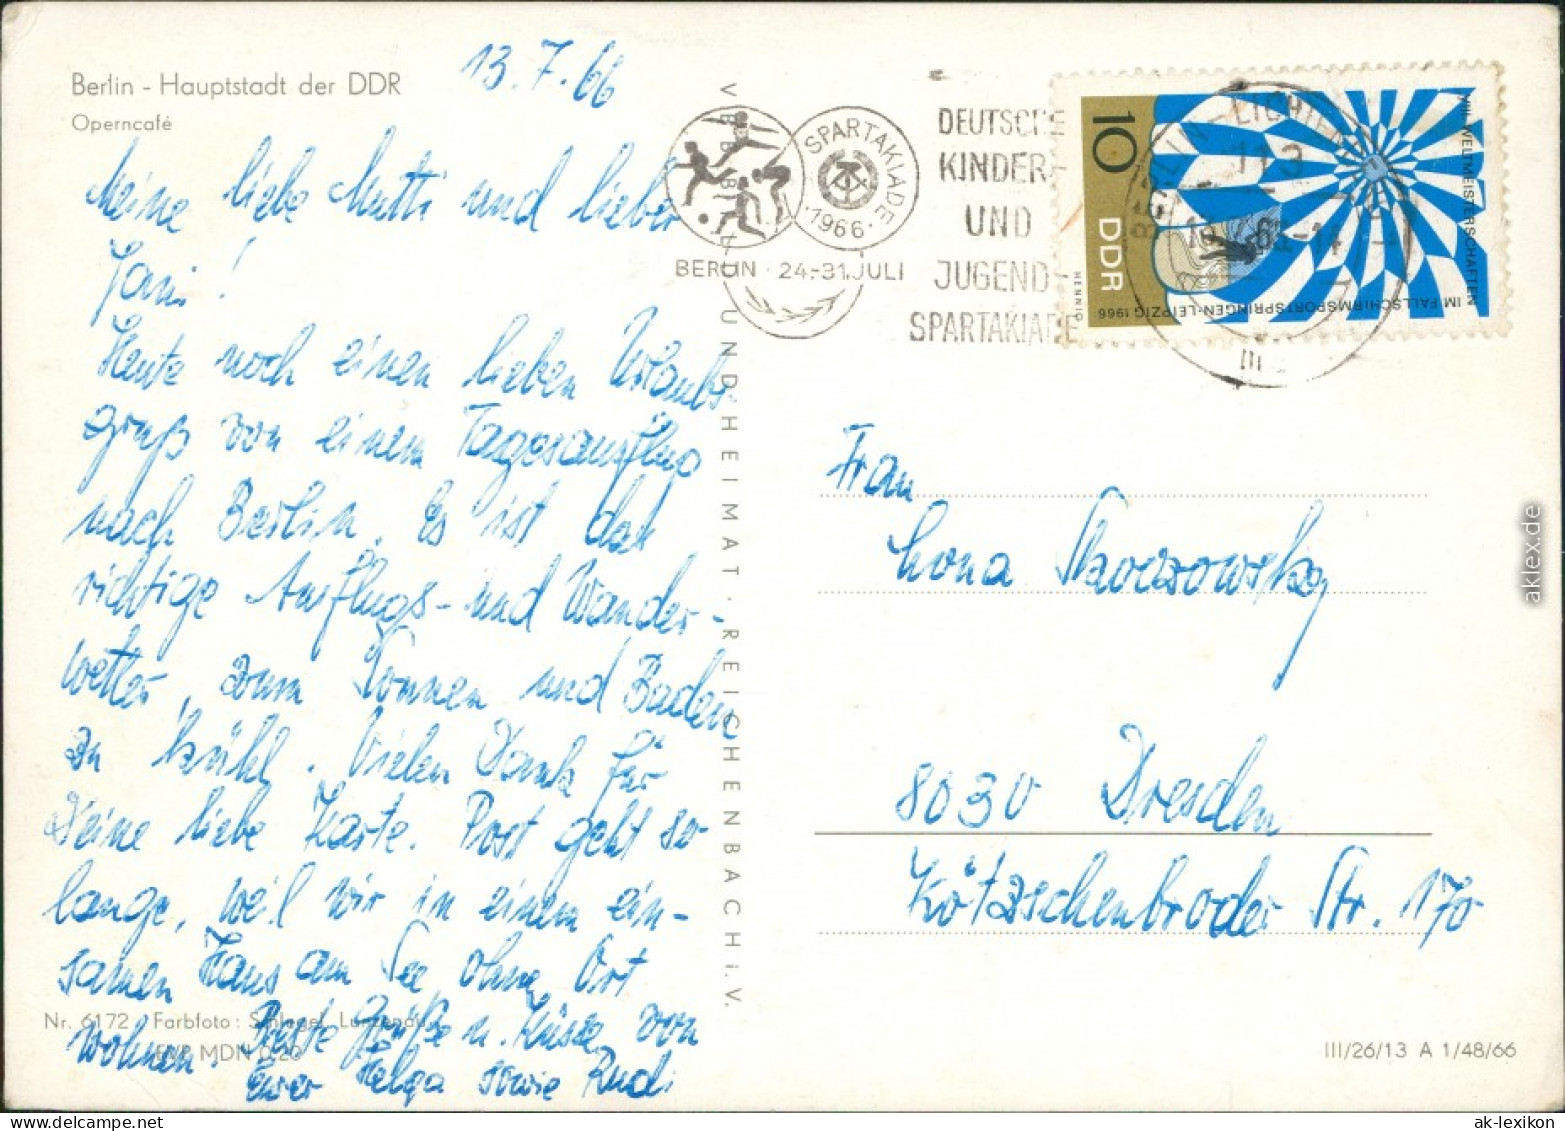 Berlin - Hauptstadt der DDR
Operncafé
13.7.66
Meine liebe Mutti und lieber
Jani!
Heute noch einen lieben Urlaubs-
gruß von einem Tagesausflug
nach Berlin. Es ist das
richtige Ausflugs- und Wander-
wetter, zum Sonnen und Baden
zu kühl. Vielen Dank für
Deine liebe Karte. Post geht so
lange, weil wir in einem ein-
samen Haus am See ohne Ort
wohnen. Beste Grüße u. Küsse von
Euer Helga sowie Rudi
Nr. 6172 Farbfoto: Schlegel, Lunzenau
EVP MDN 0,20
VEB BILD UND HEIMAT · REICHENBACH i. V.
SPARTAKIADE
·1966·
BERLIN · 24.-31. JULI
DEUTSCHE
KINDER-
UND
JUGEND-
SPARTAKIADE
BERLIN-LICHTENBERG
113
10
DDR
HENNIG
VIII. WELTMEISTERSCHAFTEN
IM FALLSCHIRMSPORTSPRINGEN-LEIPZIG 1966
Frau
Lona Skoczowsky
8030 Dresden
Kötzschenbroder Str. 170
III/26/13 A 1/48/66
aklex.de
ak-lexikon